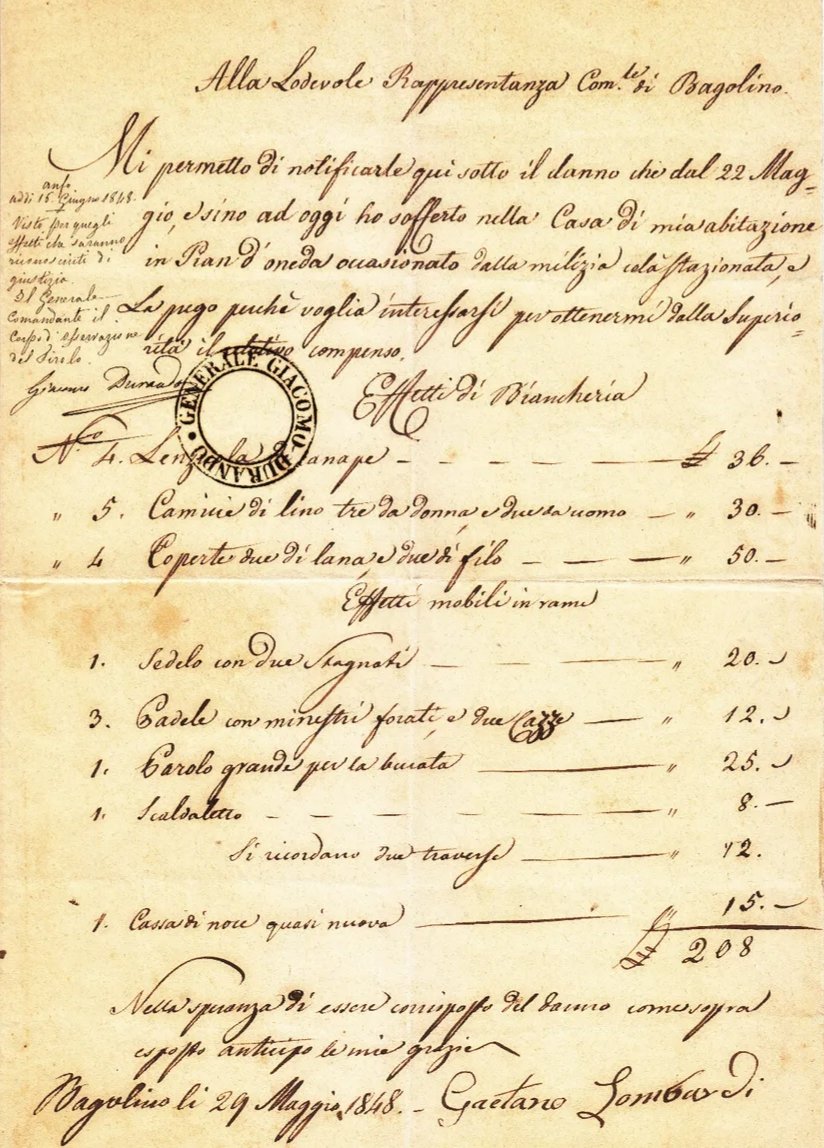 Alla Lodevole Rappresentanza Com.le di Bagolino.
Mi permetto di notificarle qui sotto il danno che dal 22 Mag=
gio, e sino ad oggi ho sofferto nella Casa di mia abitazione
in Pian d'oneda occasionato dalla milizia colà stazionata, e
La prego perchè voglia interessarsi per ottenermi dalla Superio=
rità il compenso.
Anfo
addi 15. Giugno 1848.
Visto, per quegli
effetti che saranno
riconosciuti di
giustizia.
Il Generale
Comandante il
Corpo d'osservazione
del Tirolo.
Giacomo Durando
GENERALE GIACOMO DURANDO
Effetti di Biancheria
N.o 4. canape — £ 36. —
" 5. Camicie di lino tre da donna, e due da uomo — " 30. —
" 4 Coperte due di lana, e due di filo — " 50. —
Effetti mobili in rame
1. Sedelo con due Stagnati — " 20. —
3. Padele con minestri forati, e due Cazze — " 12. —
1. Parolo grande per la bucata — " 25. —
1. Scaldaletto — " 8. —
Si ricordano due traverse — " 12.
1. Cassa di noce quasi nuova — " 15. —
£ 208
Nella speranza di essere corrisposto del danno come sopra
esposto anticipo le mie grazie
Bagolino li 29 Maggio 1848. — Gaetano Lombardi